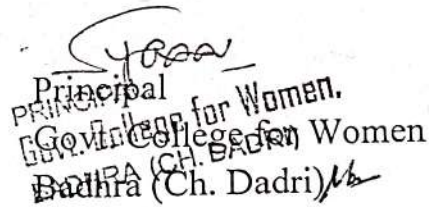 Principal
Govt. College for Women
Badhra (Ch. Dadri)
PRINCIPAL
Govt. College for Women,
BADHRA (CH. DADRI)